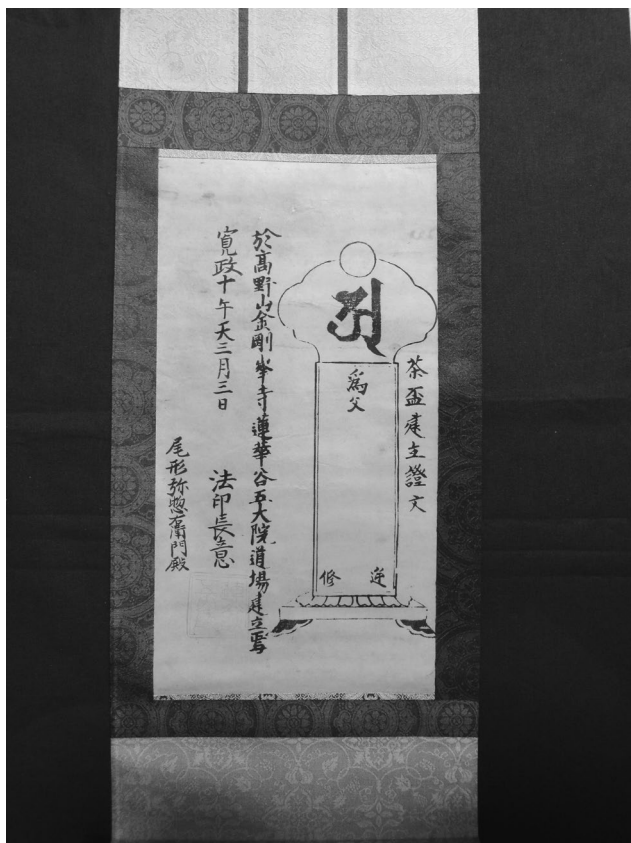 茶盃建立證文
𑖀
爲父
逆修
於高野山金剛峯寺蓮華谷五大院道場建立焉
寛政十午天三月三日
法印長意
尾形弥惣右衛門殿